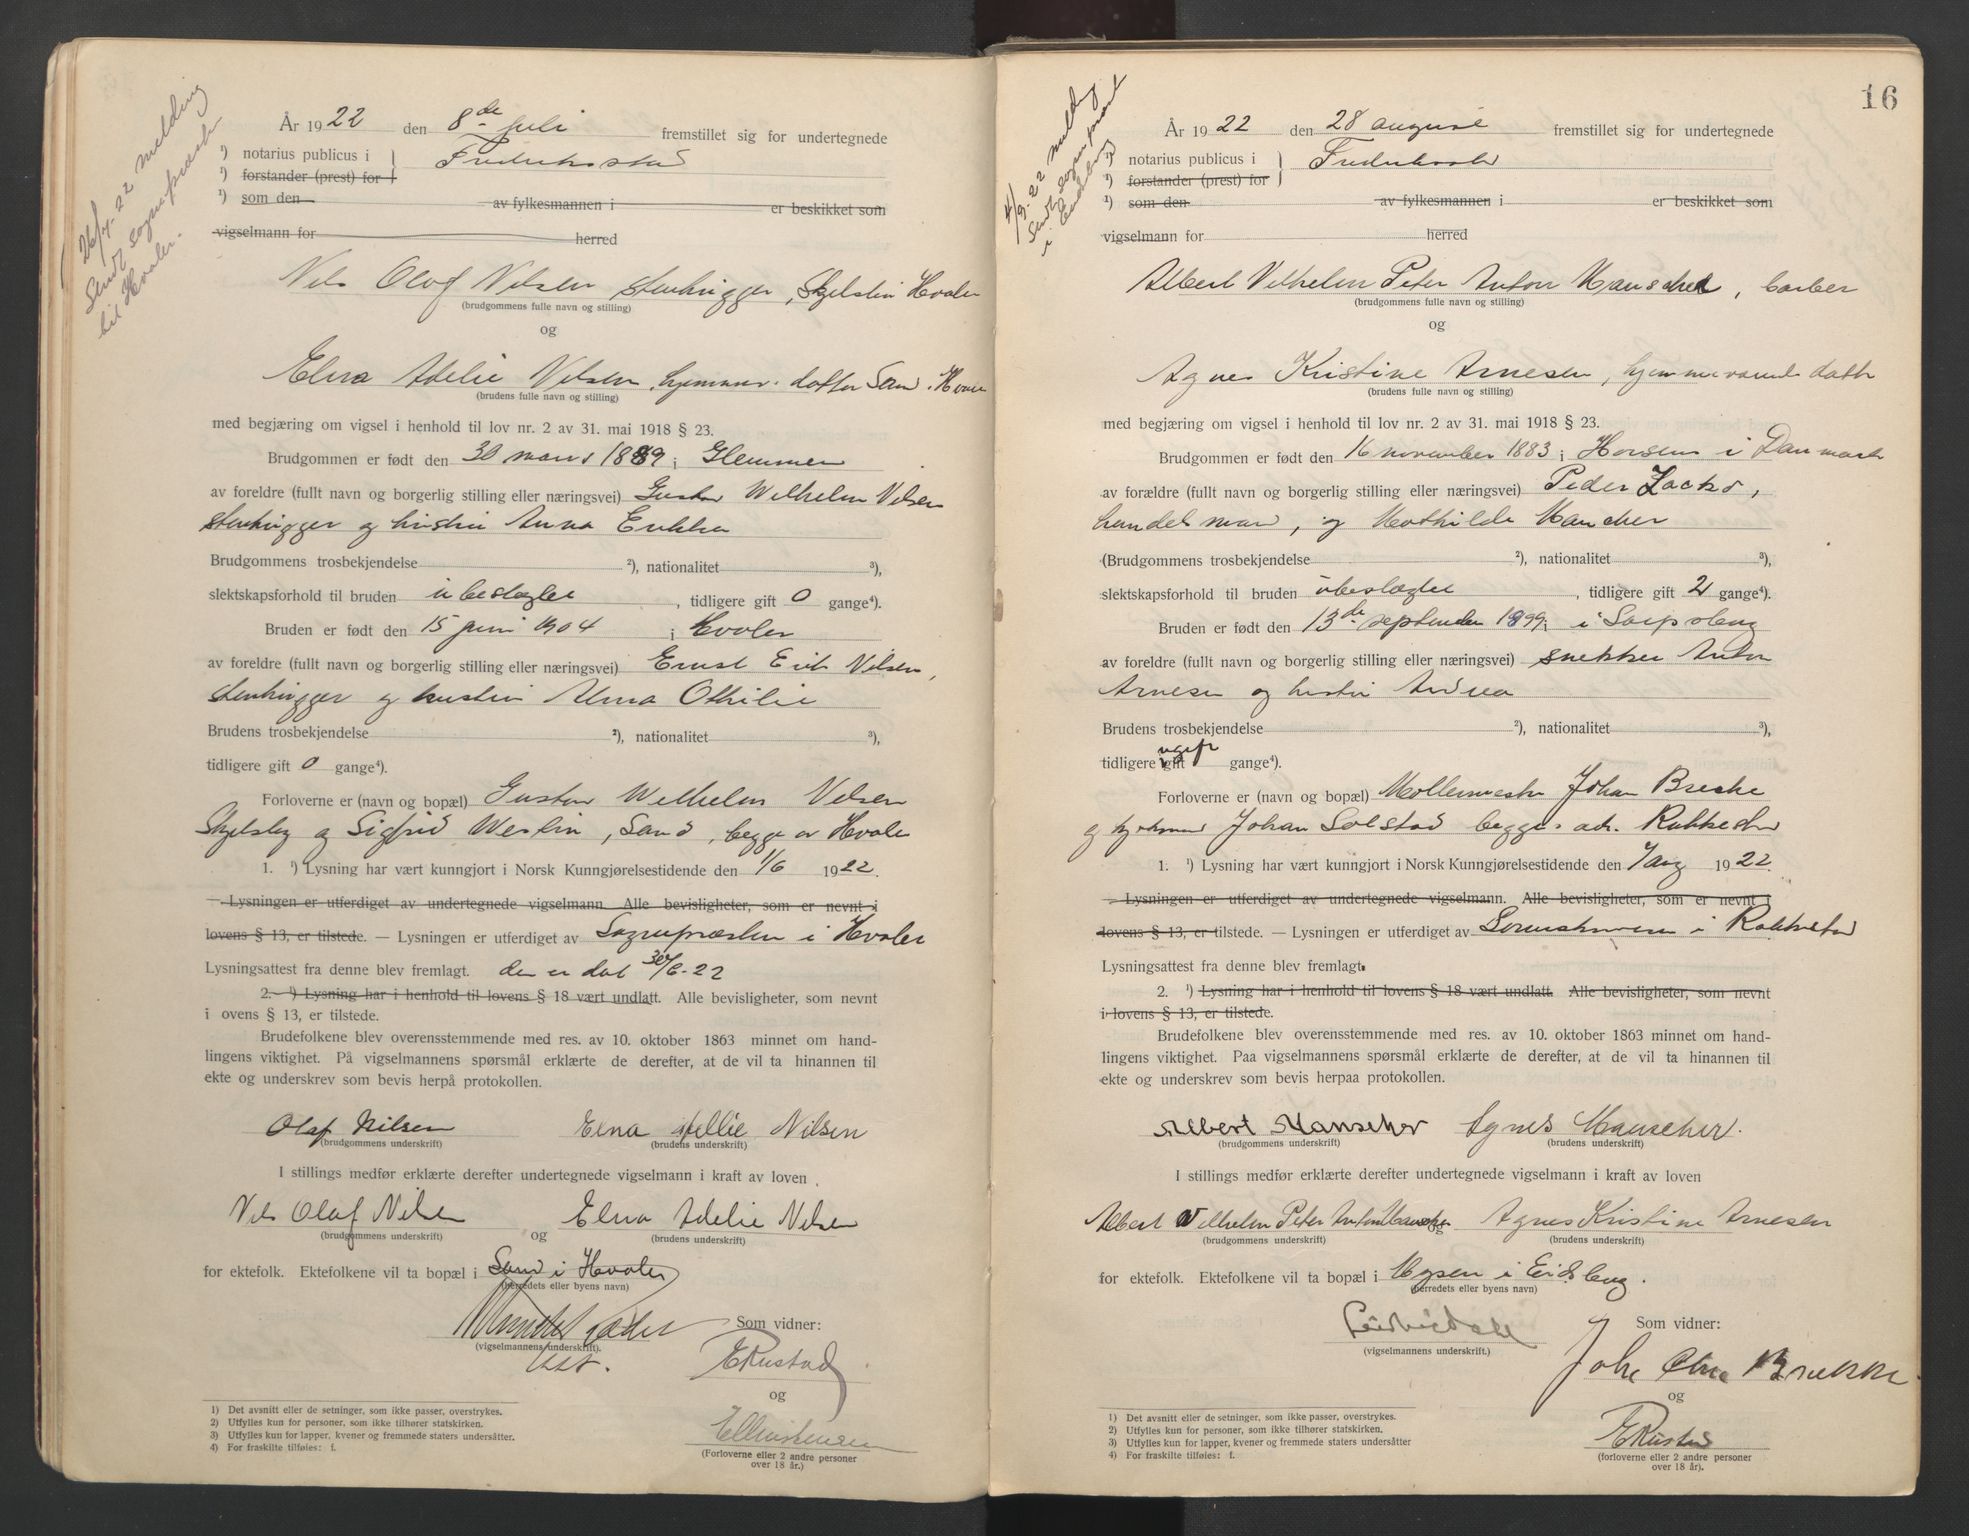 26/7. 22 melding
Sendt sogneprästen
til Hvaler.
År 1922 den 8de juli fremstillet sig for undertegnede
¹) notarius publicus i } Fredriksstad
¹) forstander (prest) for
¹) som den av fylkesmannen i er beskikket som
vigselmann for herred
Nils Olaf Nilsen stenhugger, Skjelsbu Hvaler
(brudgommens fulle navn og stilling)
og
Elna Adelie Nilsen, hjemmev. datter Sand, Hvaler
(brudens fulle navn og stilling)
med begjæring om vigsel i henhold til lov nr. 2 av 31. mai 1918 § 23.
Brudgommen er født den 30 mars 1889 i Glemmen
av foreldre (fullt navn og borgerlig stilling eller næringsvei) Gustav Wilhelm Nilsen
stenhugger og hustru Anna
Brudgommens trosbekjendelse ²), nationalitet ³),
slektskapsforhold til bruden ubeslægtet, tidligere gift 0 gange⁴).
Bruden er født den 15 juni 1904 i Hvaler
av foreldre (fullt navn og borgerlig stilling eller næringsvei) Ernst Erik Nilsen,
stenhugger og hustru Alma Othilie
Brudens trosbekjendelse ²), nationalitet ³),
tidligere gift 0 gange⁴).
Forloverne er (navn og bopæl) Gustav Wilhelm Nilsen
Skjelsbu og Sigfrid Westin, Sand, begge av Hvaler
1. ¹) Lysning har vært kunngjort i Norsk Kunngjørelsestidende den 1/6 1922.
Lysningen er utferdiget av undertegnede vigselmann. Alle bevisligheter, som er nevnt i
lovens § 13, er tilstede. — Lysningen er utferdiget av Sogneprästen i Hvaler
Lysningsattest fra denne blev fremlagt. den er dat 30/6-22
2. ¹) Lysning har i henhold til lovens § 18 vært undlatt. Alle bevisligheter, som nevnt
i ovens § 13, er tilstede.
Brudefolkene blev overensstemmende med res. av 10. oktober 1863 minnet om hand-
lingens viktighet. På vigselmannens spørsmål erklærte de derefter, at de vil ta hinannen til
ekte og underskrev som bevis herpå protokollen.
Olaf Nilsen Elna Adellie Nilsen
(brudgommens underskrift) (brudens underskrift)
I stillings medfør erklærte derefter undertegnede vigselmann i kraft av loven
Nils Olaf Nilsen og Elna Adelie Nilsen
(brudgommens underskrift) (brudens underskrift)
for ektefolk. Ektefolkene vil ta bopæl i Sand i Hvaler
(herredets eller byens navn)
Som vidner:
(vigselmannens underskrift).
ERustad
og
EChristensen
(Forloverne eller 2 andre personer
over 18 år.)
1) Det avsnitt eller de setninger, som ikke passer, overstrykes.
2) Utfylles kun for personer, som ikke tilhører statskirken.
3) Utfylles kun for lapper, kvener og fremmede staters undersåtter.
4) For fraskilte tilføies: f.
16
4/9-22 melding
Sendt sogneprest
i Eidsberg
År 1922 den 28 august fremstillet sig for undertegnede
¹) notarius publicus i } Fredriksstad
¹) forstander (prest) for
¹) som den av fylkesmannen i er beskikket som
vigselmann for herred
Albert Vilhelm Peter Anton Manscher, barber
(brudgommens fulle navn og stilling)
og
Agnes Kristine Arnesen, hjemmeværende datter
(brudens fulle navn og stilling)
med begjæring om vigsel i henhold til lov nr. 2 av 31. mai 1918 § 23.
Brudgommen er født den 16 november 1883 i Horsens i Danmark
av forældre (fullt navn og borgerlig stilling eller næringsvei) Peder
handelsmand, og Mathilde Mancher
(Brudgommens trosbekjendelse ²), nationalitet ³),
slektskapsforhold til bruden ubeslægtet, tidligere gift 2 gange⁴).
Bruden er født den 13de september 1899 i i Sarpsborg
av foreldre (fullt navn og borgerlig stilling eller næringsvei) snekker Anton
Arnesen og hustru Andrea
Brudens trosbekjendelse ²), nationalitet ³),
tidligere gift ugift gange⁴).
Forloverne er (navn og bopæl) Møllemester Johan Brekke
og Johan Solstad begge adr. Rakkestad
1. ¹) Lysning har vært kunngjort i Norsk Kunngjørelsestidende den 7 aug 1922.
Lysningen er utferdiget av undertegnede vigselmann. Alle bevisligheter, som er nevnt i
lovens § 13, er tilstede. — Lysningen er utferdiget av Sorenskriveren i Rakkestad
Lysningsattest fra denne blev fremlagt.
2. ¹) Lysning har i henhold til lovens § 18 vært undlatt. Alle bevisligheter, som nevnt
i lovens § 13, er tilstede.
Brudefolkene blev overensstemmende med res. av 10. oktober 1863 minnet om hand-
lingens viktighet. Paa vigselmannens spørsmål erklærte de derefter, at de vil ta hinannen til
ekte og underskrev som bevis herpaa protokollen.
Albert Manscher Agnes Manscher.
(brudgommens underskrift) (brudens underskrift)
I stillings medfør erklærte derefter undertegnede vigselmann i kraft av loven
Albert Vilhelm Peter Anton Manscher og Agnes Kristine Arnesen
(brudgommens underskrift) (brudens underskrift)
for ektefolk. Ektefolkene vil ta bopæl i Mysen i Eidsberg.
(herredets eller byens navn)
Som vidner:
(vigselmannens underskrift.)
Brekke
og
ERustad
(forloverne eller 2 andre personer
over 18 år).
1) Det avsnitt eller de setninger, som ikke passer, overstrykes.
2) Utfylles kun for personer, som ikke tilhører statskirken.
3) Utfylles kun for lapper, kvener og fremmede staters undersåtter
4) For fraskilte tilføies: f.